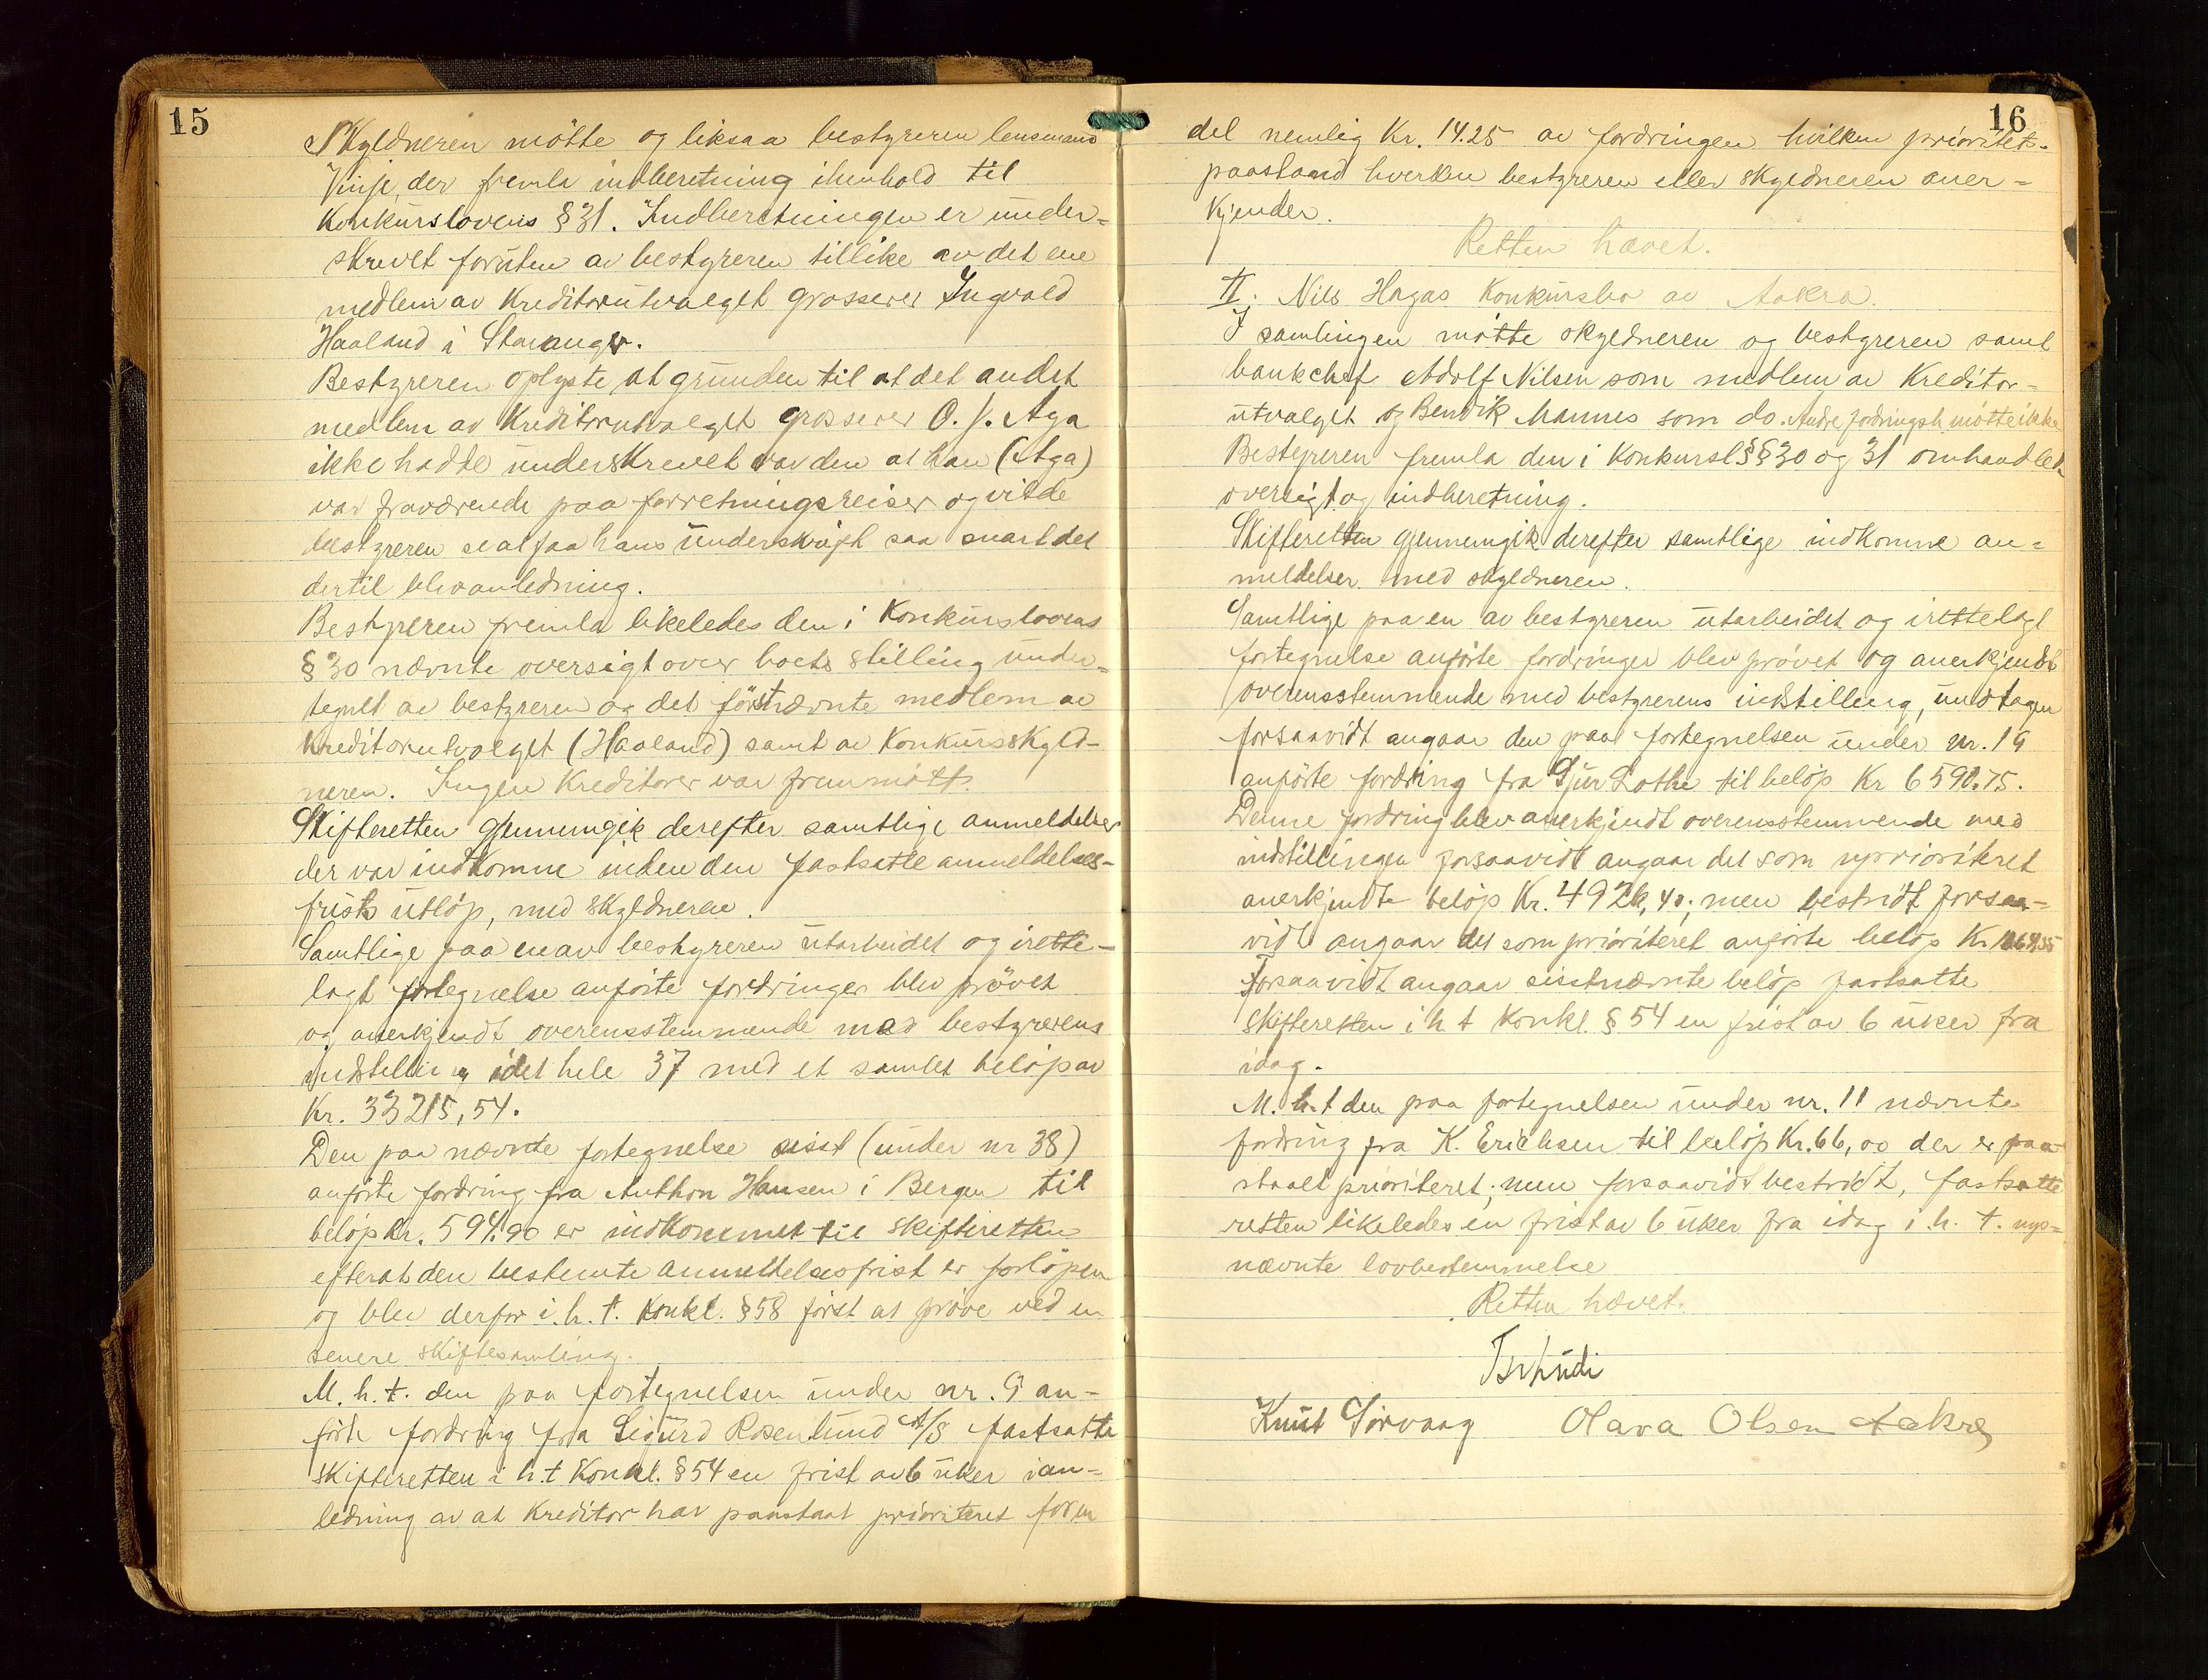 15
Skyldneren mötte og liksaa bestyreren lensmand
Vinje, der fremla indberetning ihenhold til
Konkurslovens § 31. Indberetningen er under=
skrevet foruten av bestyreren tillike av det ene
medlem av Kreditorutvalget grosserer Ingvald
Haaland i Stavanger.
Bestyreren oplyste at grunden til at det andet
medlem av Kreditorutvalget grosserer O. J. Aga
ikke hadde underskrevet var den at han (Aga)
var fraværende paa forretningsreiser og vilde
bestyreren se at faa hans underskrift saa snart det
dertil blev anledning.
Bestyreren fremla likeledes den i Konkurslovens
§ 30 nævnte oversigt over boets stilling under=
tegnet av bestyreren og det förstnævnte medlem av
Kreditorutvalget (Haaland) samt av Konkursskyld-
neren. Ingen Kreditorer var fremmött.
Skifteretten gjennemgik derefter samtlige anmeldelser
der var indkomne inden den fastsatte anmeldelses-
frists utlöp, med skyldneren.
Samtlige paa en av bestyreren utarbeidet og irette-
lagt fortegnelse anförte fordringer blev prövet
og anerkjendt overensstemmende med bestyrerens
indstilling idet hele 37 med et samlet belöp av
Kr. 33215,54.
Den paa nævnte fortegnelse sisst (under nr 38)
anförte fordring fra Anthon Hansen i Bergen til
belöp kr. 594.90 er indkommet til skifteretten
efterat den bestemte anmeldelsesfrist er forlöpen
og blev derfor i. h. t. Konkl. § 58 först at pröve ved en
senere skiftesamling.
M. h. t. den paa fortegnelsen under nr. 9 an-
förte fordring fra Sigurd Rosenlund A/S fastsatte
skifteretten i h. t Konkl. § 54 en frist av 6 uker i an-
ledning av at Kreditor har paastaat prioriteret for en
16
del nemlig Kr. 14.25 av fordringen hvilken prioritet-
paastand hverken bestyreren eller skyldneren aner=
kjender.
Retten hævet.
II. Nils Hagas Konkursbo av Aakra.
I samlingen mötte skyldneren og bestyreren samt
bankchef Adolf Nilsen som medlem av Kreditor=
utvalget og Bendik Mannes som do. Andre fordringsh. mötte ikke
Bestyreren fremla den i Konkursl. §§ 30 og 31 omhandlede
oversigt og indberetning.
Skifteretten gjennemgik derefter samtlige indkomne an=
meldelser med skyldneren.
Samtlige paa en av bestyreren utarbeidet og irettelagt
fortegnelse anförte fordringer blev prövet og anerkjendt
overensstemmende med bestyrerens indstilling, undtagen
forsaavidt angaar den paa fortegnelsen under nr. 19
anförte fordring fra Sjur Lothe til belöp Kr 6590.75.
Denne fordring blev anerkjendt overensstemmende med
indstillingen forsaavidt angaar det som uprioriteret
anerkjendte belöp Kr. 4926,40; men bestridt forsaa-
vidt angaar det som prioriteret anförte belöp Kr 1664,35
Forsaavidt angaar sisstnævnte belöp fastsatte
skifteretten i h. t Konkl. § 54 en frist av 6 uker fra
idag.
M. h. t den paa fortegnelsen under nr. 11 nævnte
fordring fra K. Erichsen til belöp Kr. 66,00 der er paa-
staaet prioriteret; men forsaavidt bestridt, fastsatte
retten likeledes en frist av 6 uker fra idag i. h. t. nys=
nævnte lovbestemmelse
Retten hævet.
Tschudi
Knut Sörvaag Olava Olsen Aakre